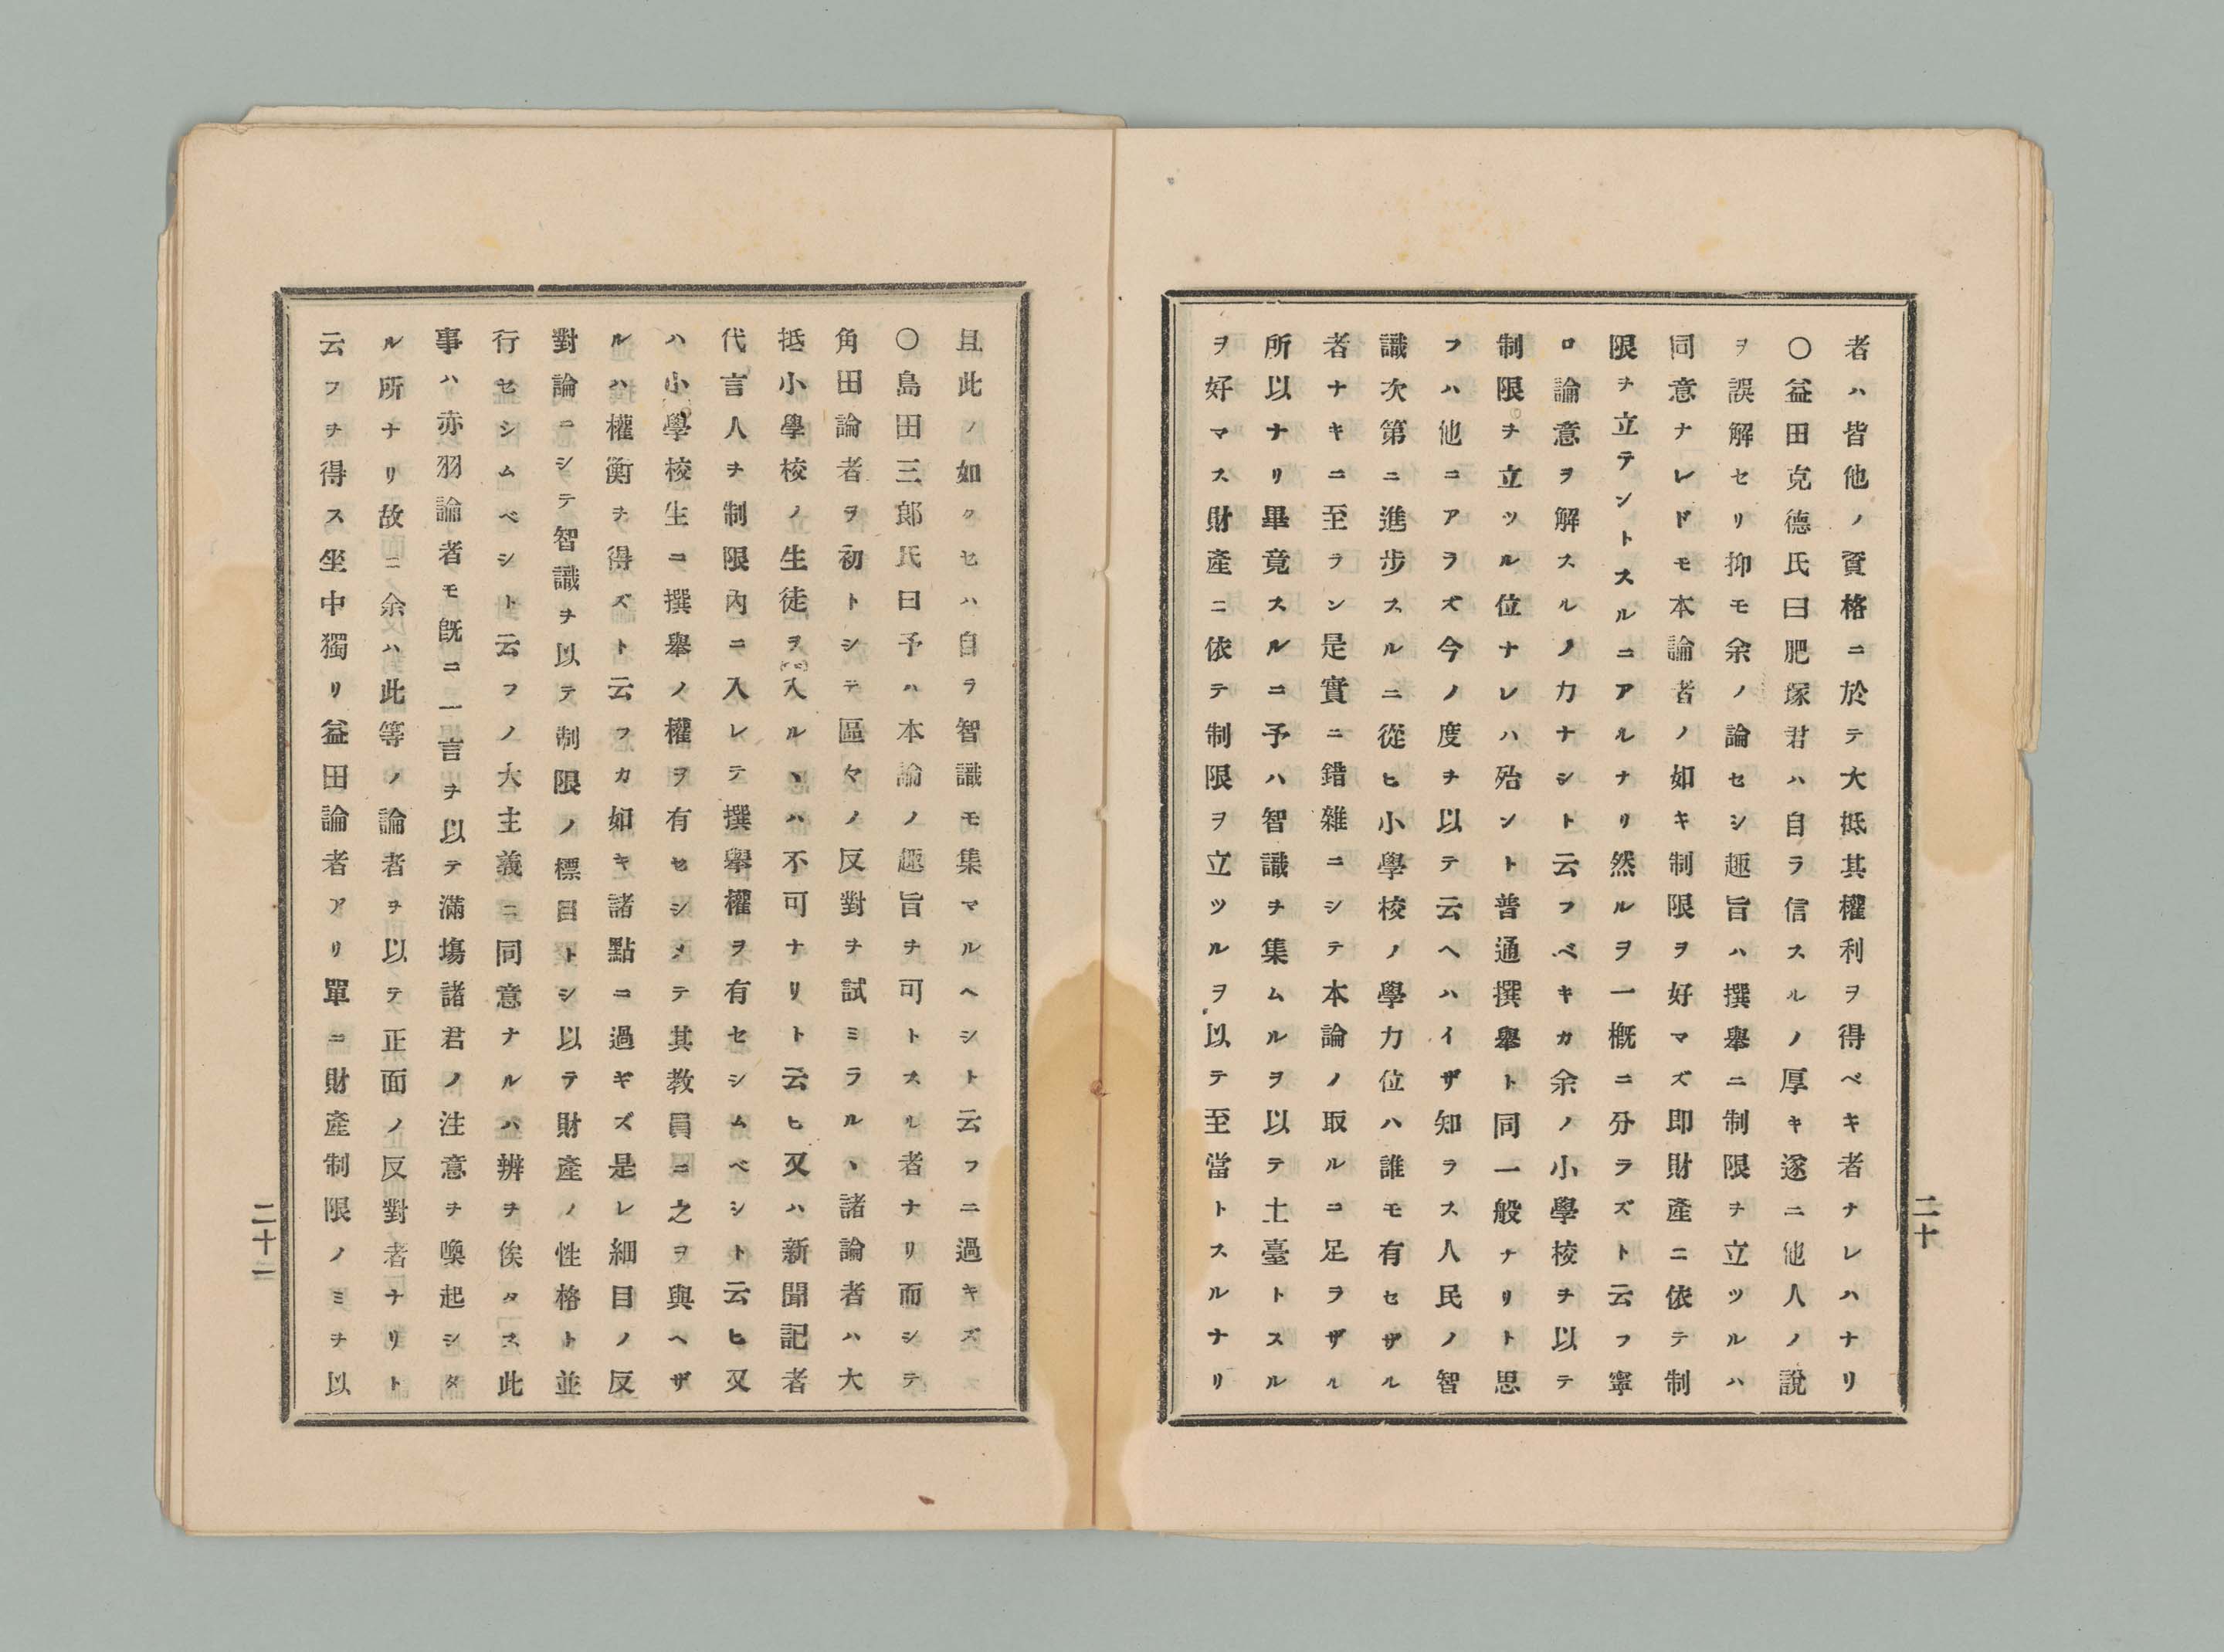 者ハ皆他ノ資格ニ於テ大抵其權利ヲ得ベキ者ナレハナリ
〇益田克德氏曰肥塚君ハ自ラ信スルノ厚キ遂ニ他人ノ說
ヲ誤解セリ抑モ余ノ論セシ趣旨ハ撰擧ニ制限ヲ立ツルハ
同意ナレドモ本論者ノ如キ制限ヲ好マズ即財產ニ依テ制
限ヲ立テントスルニアルナリ然ルヲ一概ニ分ラズト云フ寧
ロ論意ヲ解スルノ力ナシト云フベキカ余ノ小學校ヲ以テ
制限ヲ立ツル位ナレハ殆ント普通撰擧ト同一般ナリト思
フハ他ニアラズ今ノ度ヲ以テ云ヘハイザ知ラス人民ノ智
識次第ニ進步スルニ從ヒ小學校ノ學力位ハ誰モ有セザル
者ナキニ至ラン是實ニ錯雜ニシテ本論ノ取ルニ足ヲザル
所以ナリ畢竟スルニ予ハ智識ヲ集ムルヲ以テ土臺トスル
ヲ好マス財產ニ依テ制限ヲ立ツルヲ以テ至當トスルナリ
二十
且此ノ如クセハ自ラ智識モ集マルヘシト云フニ過キズ
〇島田三郎氏曰予ハ本論ノ趣旨ヲ可トスル者ナリ而シテ
角田論者ヲ初トシテ區々ノ反對ヲ試ミラルヽ諸論者ハ大
抵小學校ノ生徒ヲ入ルヽハ不可ナリト云ヒ又ハ新聞記者
代言人ヲ制限內ニ入レテ撰擧權ヲ有セシムベシト云ヒ又
ハ小學校生ニ撰擧ノ權ヲ有セシメテ其教員ニ之ヲ與ヘザ
ルハ權衡ヲ得ズト云フカ如キ諸點ニ過ギズ是レ細目ノ反
對論ニシテ智識ヲ以テ制限ノ標目トシ以テ財產ノ性格ト並
行セシムベシト云フノ大主義ニ同意ナルハ辨ヲ俟タス此
事ハ赤羽論者モ旣ニ一言ヲ以テ滿塲諸君ノ注意ヲ喚起シタ
ル所ナリ故ニ余ハ此等ノ論者ヲ以テ正面ノ反對者ナリト
云フヲ得ス坐中獨リ益田論者アリ單ニ財產制限ノミヲ以
二十一